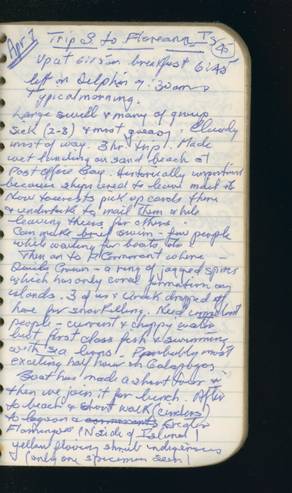 Apr 7
Trip 3 to Floreana Is
Up at 6:15 am breakfast 6:45
left on Delphin 7:30am
Typical morning.
Large swell & many of group
sick (2-3) & most queasy. Cloudy
most of way. 3 hr trip. Made
wet landing on sand beach at
Post Office Bay. Historically important
because ships used to leave mail etc
Now tourists pick up cards there
& undertake to mail them while
leaving theirs for others
Can make brief swim - few people
while waiting for boats etc
Then on to Pt Cormorant where -
Devils Crown - a ring of jagged spires
which has only coral formation in
islands. 3 of us & dropped off
here for snorkelling. Need
people - current & choppy water
but first class fish & swimming
with sea lions. Probably most
exciting half hour in Galapagos
Boat has made a short tour &
then we join it for lunch. After
to beach & short walk (cinders)
to lagoon
Flamingos (N side of Island)
yellow flowing shrub indigenous
(only one specimen seen)